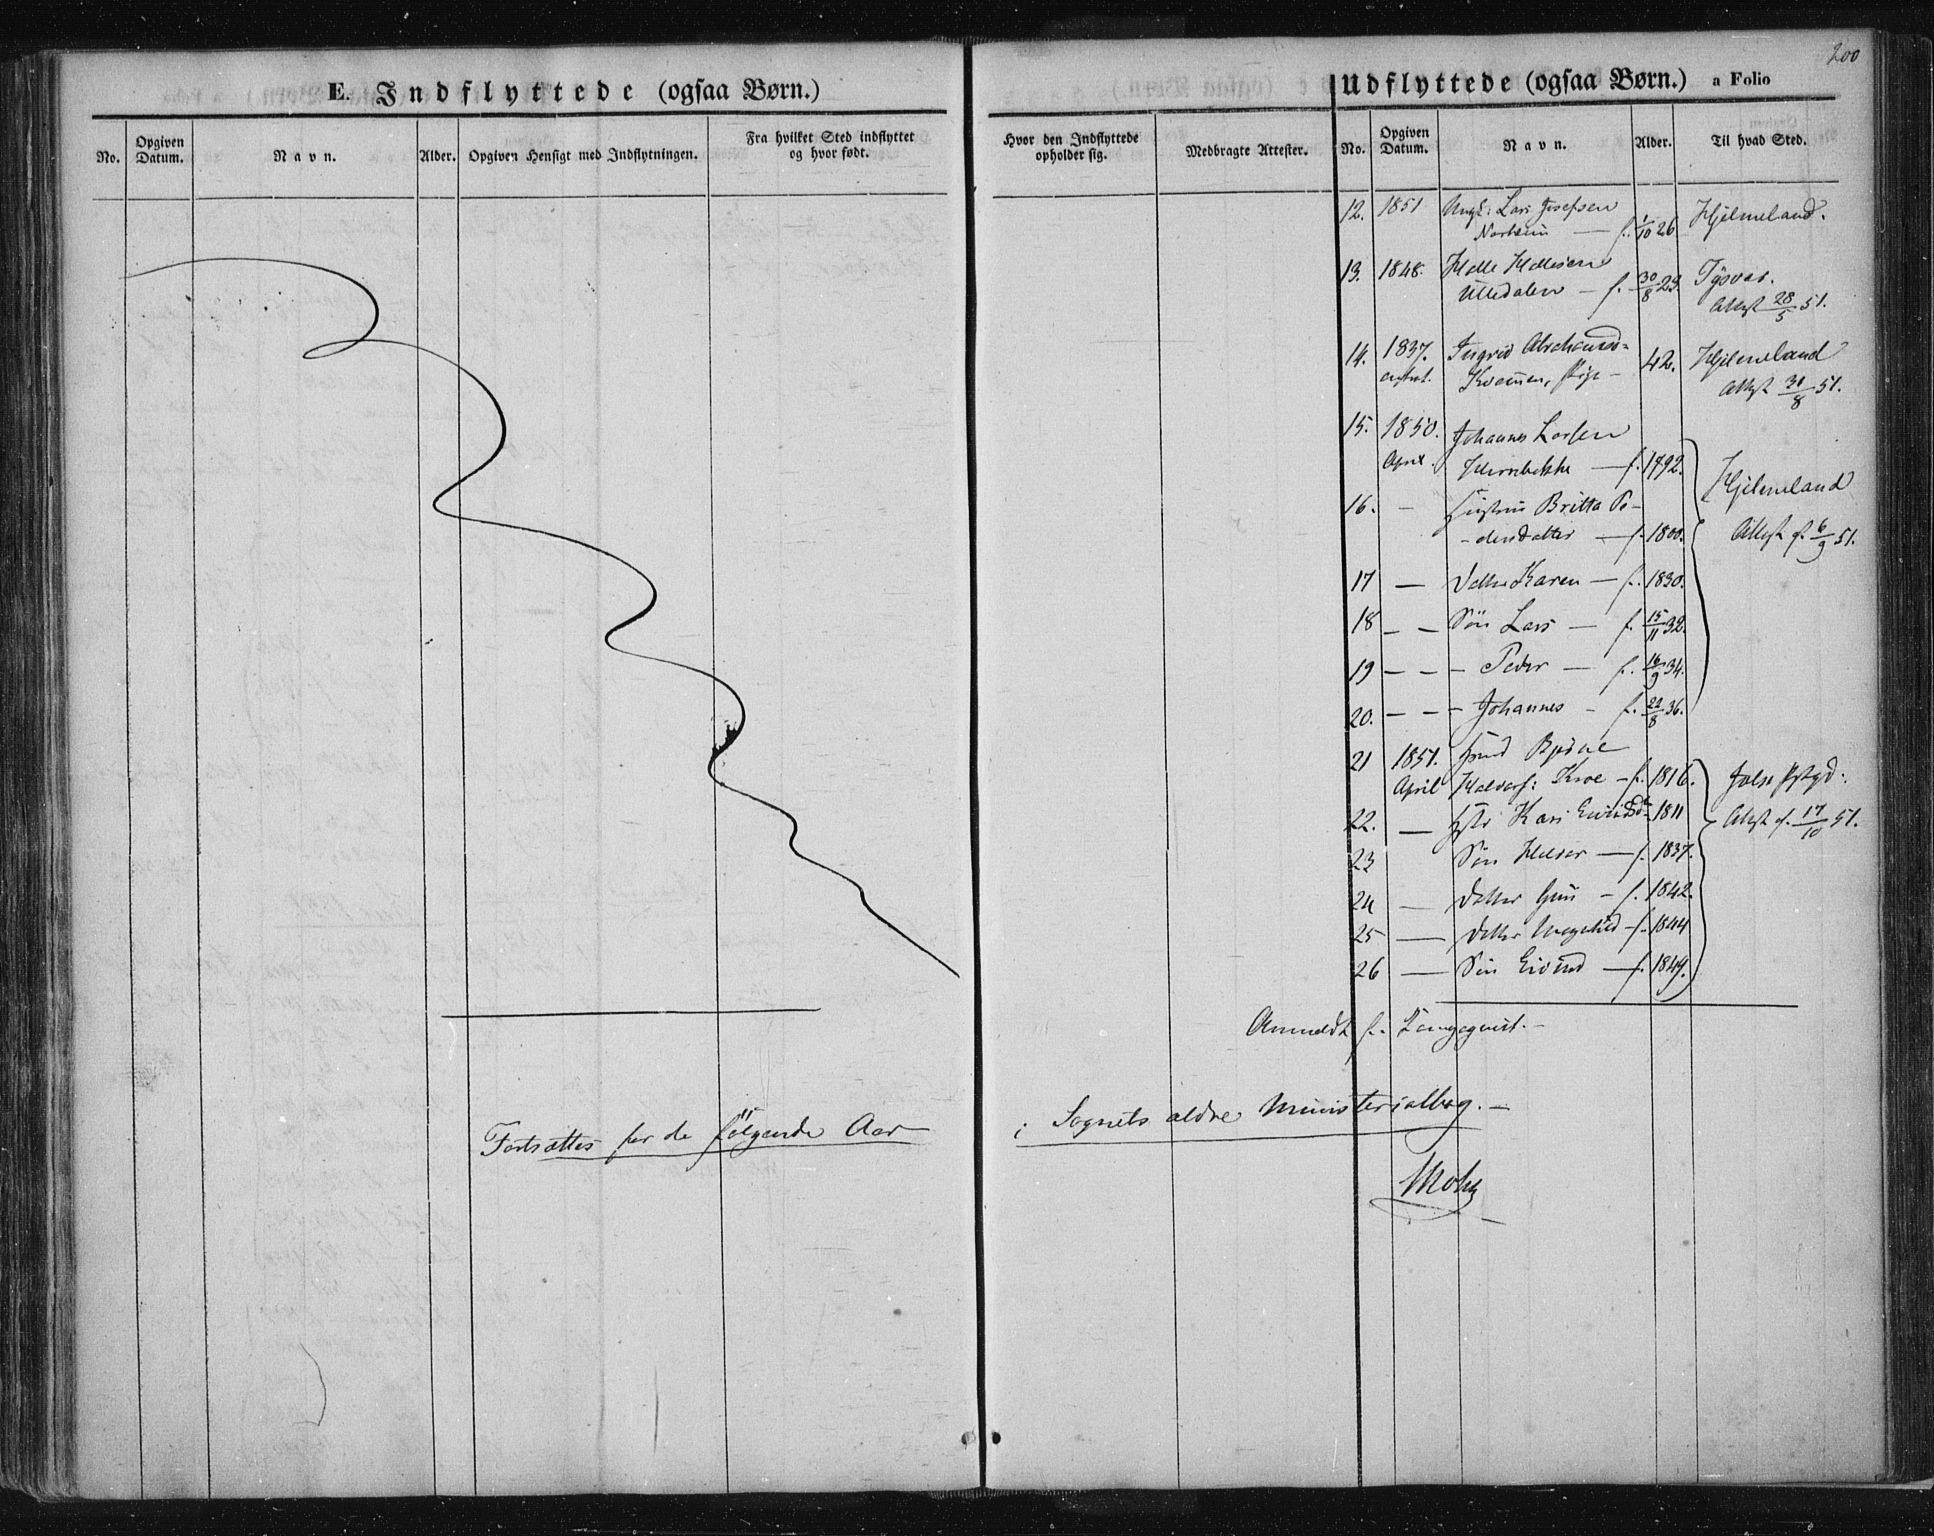 200
E. Indflyttede (ogsaa Børn.)
No.
Opgiven Datum.
Navn.
Alder.
Opgiven Hensigt med Indflytningen.
Fra hvilket Sted indflyttet og hvor født.
Hvor den Indflyttede opholder sig.
Medbragte Attester.
Udflyttede (ogsaa Børn.) a Folio
No.
Opgiven Datum.
Navn.
Alder.
Til hvad Sted.
12. 1851 Ungk: Lars Josefsen Hjelmeland.
Norheim — f. 1/10 26
13. 1848. Helle Hellesen Tysvær.
Ulledalen — f. 30/8 23. Attest 28/5 51.
14. 1837. Ingrid Abrahamsd= 42. Hjelmeland
Pige – Attest 30/8 51.
15. 1850. Johannes Larsen
April. — f. 1792. Hjelmeland
16. – Hustru Britta Pe–
–dersdatter — f. 1800. Attest f. 6/9 51.
17 — Datter Karen — f. 1830.
18 — — Søn Lars — f. 15/11 32.
19 — — – Peder — f. 16/9 34.
20. — — – Johannes – f. 22/8 36.
21 1851. Hmd Bjørne
April Halvors: Kroe – f. 1816. Jelse Pstgd:
22. — Hstr Kari Eivindsd 1811 Attest f. 17/10 51.
23 Søn Halvor — f. 1837.
24 — Datter Guri – f. 1842.
25 — Datter Magnhild – f. 1844
26 — Søn Eivind — f. 1849.
Anmeldt f. Langquist. –
Fortsættes for de følgende Aar i Sognets ældre Ministerialbog. –